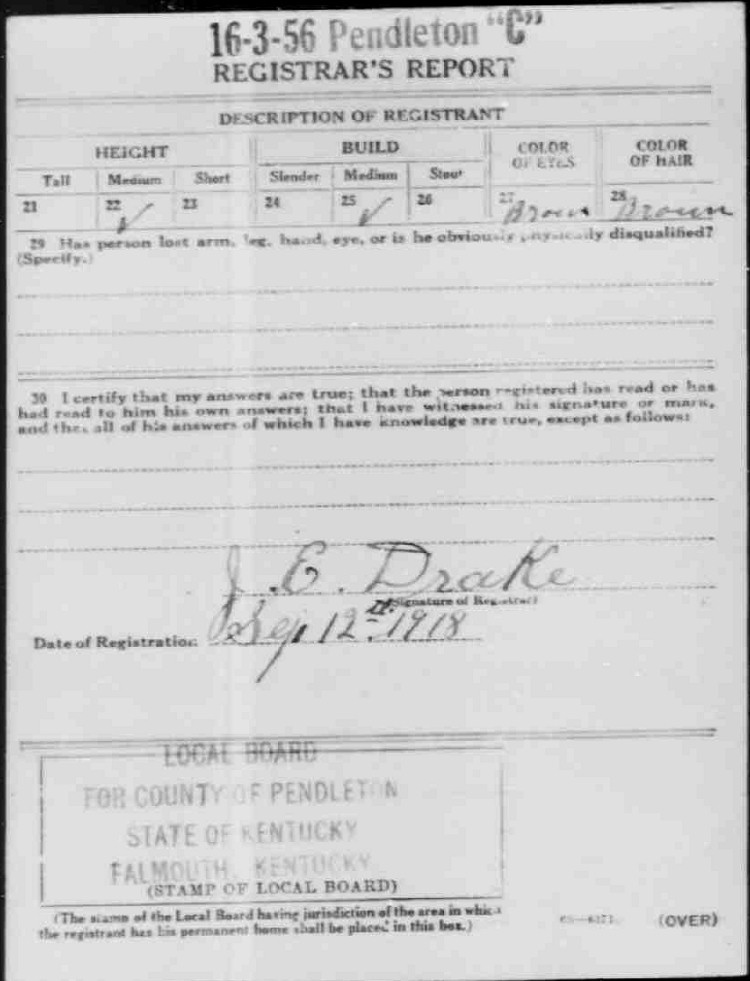 16-3-56 Pendleton "C"
REGISTRAR'S REPORT
DESCRIPTION OF REGISTRANT
HEIGHT BUILD COLOR OF EYES COLOR OF HAIR
Tall Medium Short Slender Medium Stout
21 22 ✓ 23 24 25 ✓ 26 27 Brown 28 Brown
29 Has person lost arm, leg, hand, eye, or is he obviously physically disqualified?
(Specify.)
30 I certify that my answers are true; that the person registered has read or has
had read to him his own answers; that I have witnessed his signature or mark,
and that all of his answers of which I have knowledge are true, except as follows:
J. E. Drake
(Signature of Registrar)
Date of Registration Sep 12th 1918
LOCAL BOARD
FOR COUNTY OF PENDLETON
STATE OF KENTUCKY
FALMOUTH, KENTUCKY
(STAMP OF LOCAL BOARD)
(The stamp of the Local Board having jurisdiction of the area in which
the registrant has his permanent home shall be placed in this box.)
(OVER)